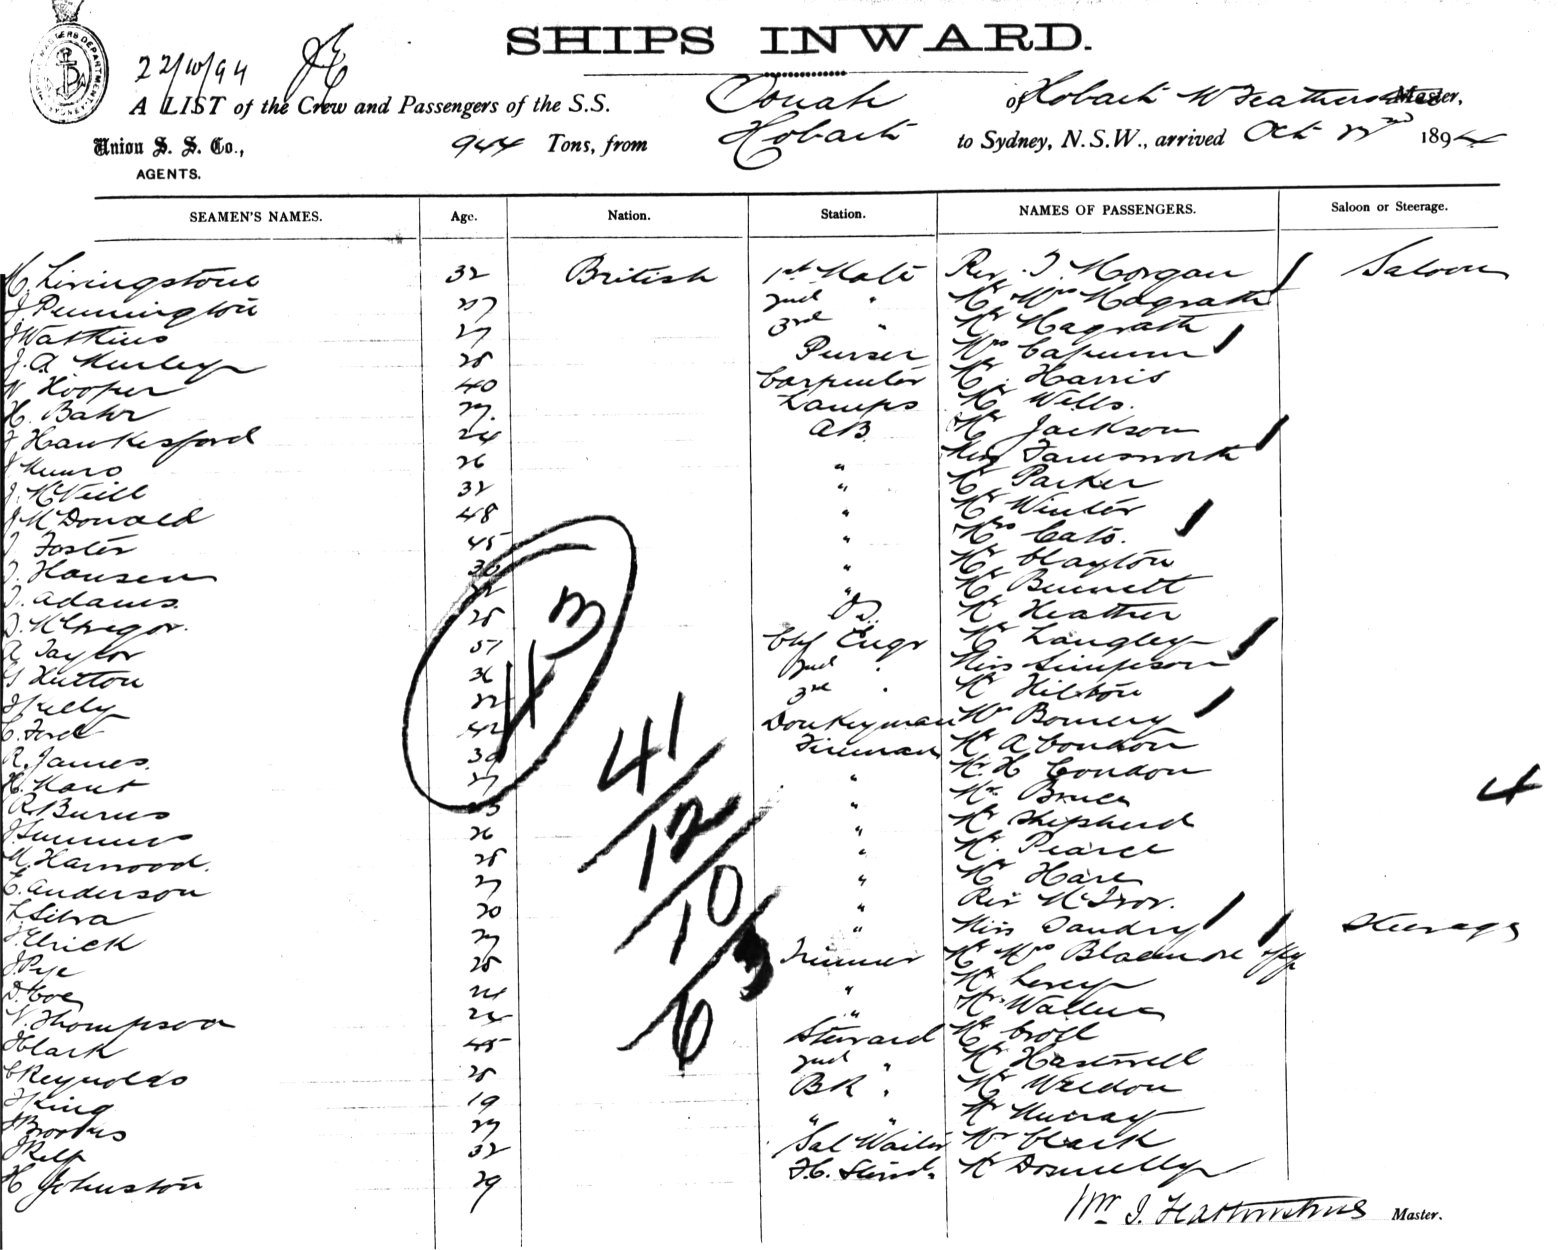 SHIPS INWARD.
22/10/94 JE
A LIST of the Crew and Passengers of the S.S. Oonah of Hobart Master,
Union S. S. Co., 944 Tons, from Hobart to Sydney, N.S.W., arrived Oct 22nd 1894
AGENTS.
SEAMEN'S NAMES. Age. Nation. Station. NAMES OF PASSENGERS. Saloon or Steerage.
Livingstone 32 British 1st Mate Rev. T. Morgan Saloon
J Pennington 27 2nd " Mr Mrs Magrath
J Watkins 27 3rd " Mr Magrath
J. A. Murley 28 Purser Mrs
W Hooper 40 Carpenter Mr Harris
H. Bahr 27 Lamps Mr Wells.
J Hawkesford 24 AB. Mr Jackson
J Munro 26 " Miss Farnsworth
J. McNeill 32 " Mr Parker
J McDonald 48 " Mr Winter
J Foster 45 " Mrs Cato.
J. Hansen 30 " Mr Clayton
J. Adams " Mr Bennett
D. McGregor. 28 Mr Heather
A Taylor 51 Chf Engr Mr Langley
G Hutton 36 2nd " Miss Simpson
32 3rd " Mr Hilton
C. Ford 42 Donkeyman Mr
R. James. 39 Fireman Mr A Condon
27 " Mr H Condon
R Burns " Mr Bruce
26 " Mr Shepherd
M. Harwood. 28 " Mr Pearce
E. Anderson 27 " Mr Hare
L Silva 20 " Rev
J. Elrick 27 " Miss Steerage
J. Pye 28 Trimmer Mr Mrs Blackmore
D. Coe 24 " Mr
N. Thompson 24 " Mr Wallace
45 Steward Mr Croll
C Reynolds 28 2nd " Mr Hastwell
J King 19 BR " Mr Weldon
J Brookes 27 " " Mr Murray
J Relf 32 Sal Waiter Mr Clark
H Johnston 29 F.C. Stwd. Mr Donnelly
43
41
12
10
63
4
Wm J. Master.